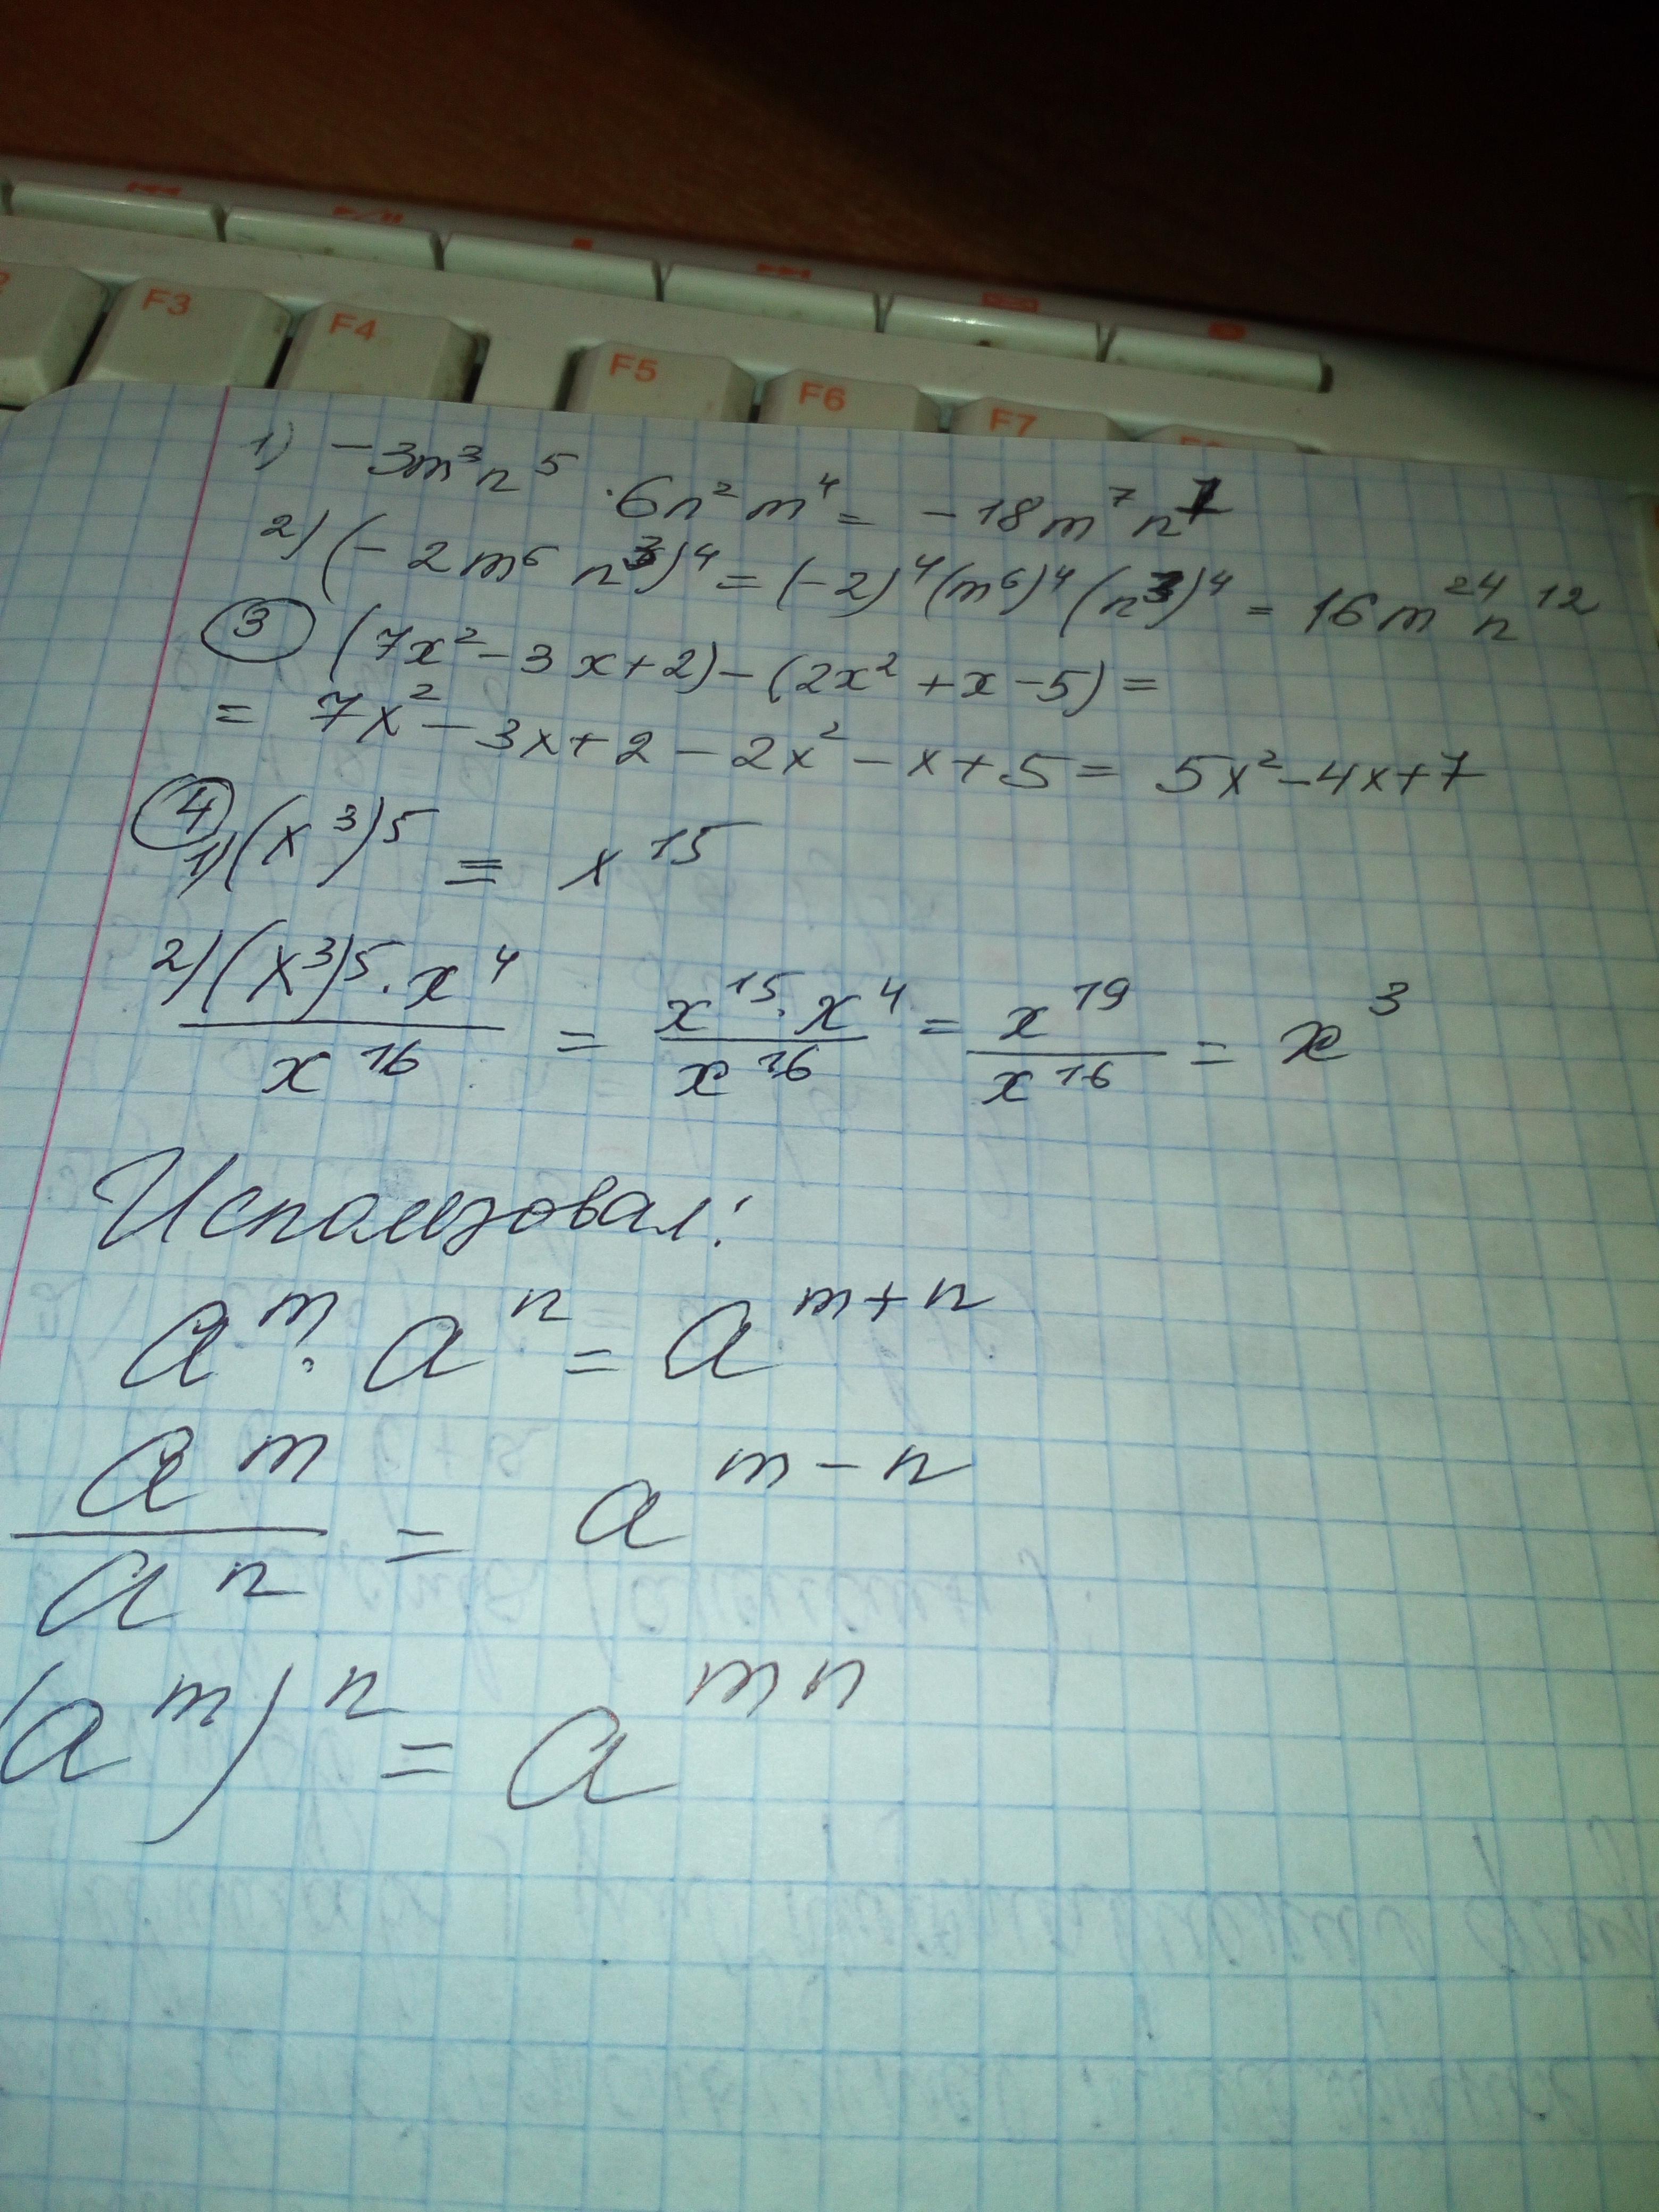 F3 F4 F5 F6 F7
1) -3m³n⁵ · 6n²m⁴ = -18m⁷n⁷
2) (-2m⁶n³)⁴ = (-2)⁴(m⁶)⁴(n³)⁴ = 16m²⁴n¹²
3 (7x²-3x+2)-(2x²+x-5)=
= 7x²-3x+2-2x²-x+5= 5x²-4x+7
4
1) (x³)⁵ = x¹⁵
2) (x³)⁵·x⁴ / x¹⁶ = x¹⁵·x⁴ / x¹⁶ = x¹⁹ / x¹⁶ = x³
Использовал:
aᵐ · aⁿ = aᵐ⁺ⁿ
aᵐ / aⁿ = aᵐ⁻ⁿ
(aᵐ)ⁿ = aᵐⁿ